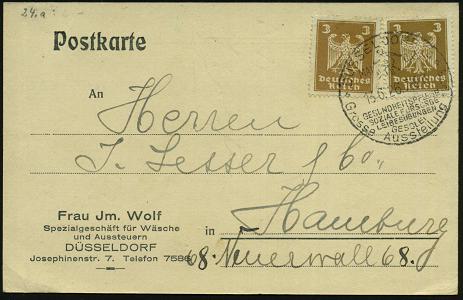 24.a
Postkarte
3 3
Deutsches Reich Deutsches Reich
GESUNDHEITSPFLEGE
SOZIALE FÜRSORGE
LEIBESÜBUNGEN
GESOLEI
Grosse Ausstellung
An
Herren
J. Lesser & Co.,
Frau Jm. Wolf
Spezialgeschäft für Wäsche
und Aussteuern
DÜSSELDORF
Josephinenstr. 7. Telefon 7586
in Hamburg
68. Neuerwall 68.